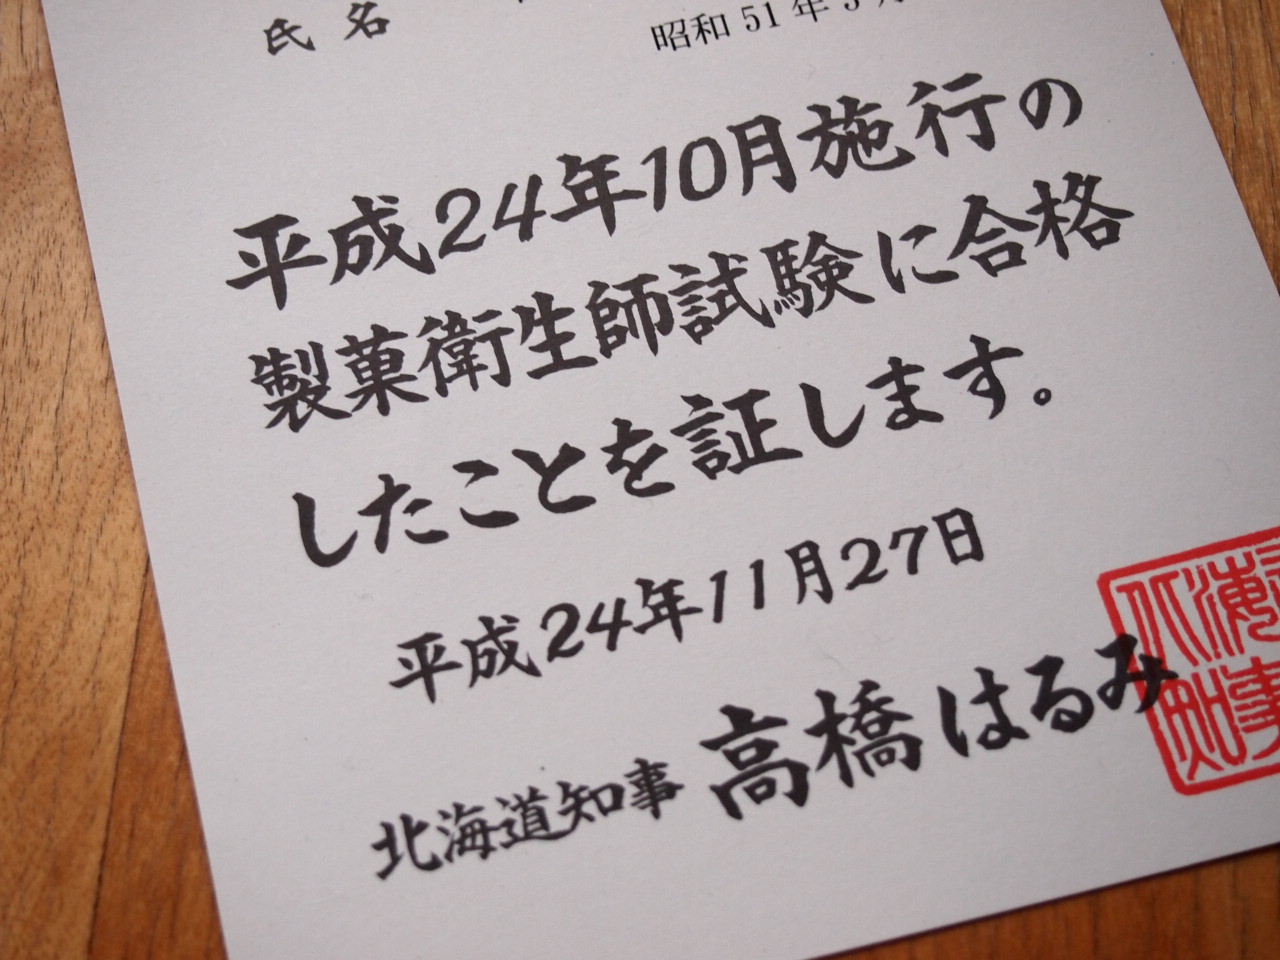 氏名
昭和51年
平成24年10月施行の
製菓衛生師試験に合格
したことを証します。
平成24年11月27日
北海道知事 高橋はるみ
北海道
知事